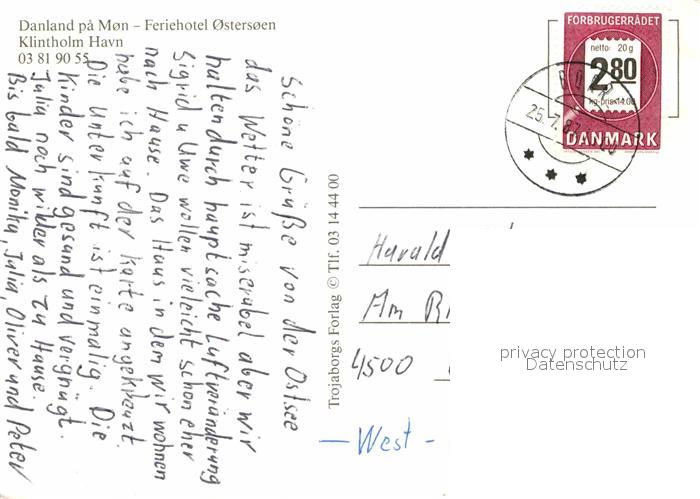 Danland på Møn – Feriehotel Østersøen
Klintholm Havn
03 81 90 55
Schöne Grüße von der Ostsee
das Wetter ist miserabel aber wir
halten durch hauptsache Luftveränderung
Sigrid u Uwe wollen vieleicht schon eher
nach Hause. Das Haus in dem wir wohnen
habe ich auf der Karte angekreuzt.
Die Unterkunft ist einmalig. Die
Kinder sind gesund und vergnügt.
Julia noch wilder als zu Hause.
Bis bald Monika, Julia, Oliver und Peter
Trojaborgs Forlag © Tlf. 03 14 44 00
FORBRUGERRÅDET
netto: 20 g
2 80
kg-pris 14.00
DANMARK
25.7.87
Harald
Am
4500
— West -
privacy protection
Datenschutz